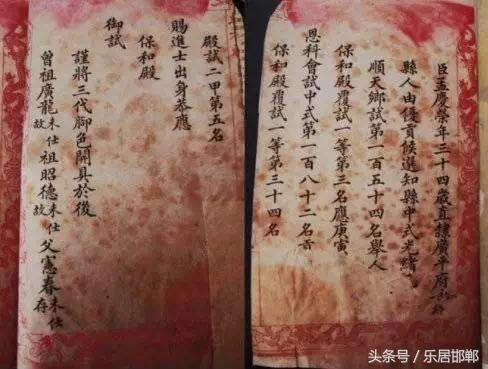 臣孟慶榮年三十四歲直隸廣平府
縣人由優貢候選知縣中式光緒
順天鄉試第一百五十四名舉人
保和殿覆試一等第三名應庚寅
恩科會試中式第一百八十二名
保和殿覆試一等第三十四名
殿試二甲第五名
賜進士出身恭應
保和殿
御試
謹將三代腳色開具於後
曾祖廣龍未仕故祖昭德未仕故父憲春未仕存
头条号／乐居邯郸